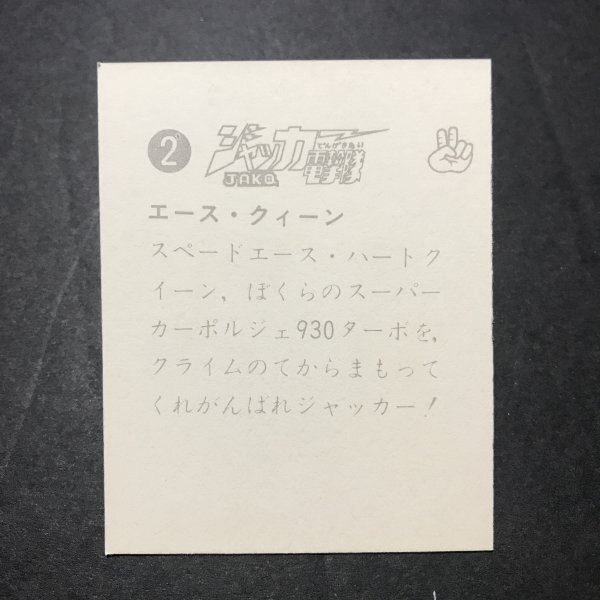 2
ジャッカー
でんげきたい
電撃隊
JAKQ
エース・クィーン
スペードエース・ハートク
イーン，ぼくらのスーパー
カーポルシェ930ターボを，
クライムのてからまもって
くれがんばれジャッカー！